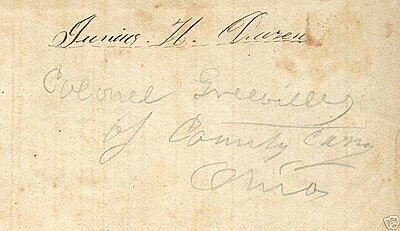 Junius. H. Duren
Colonel Greeville
of County Cany
Ohio